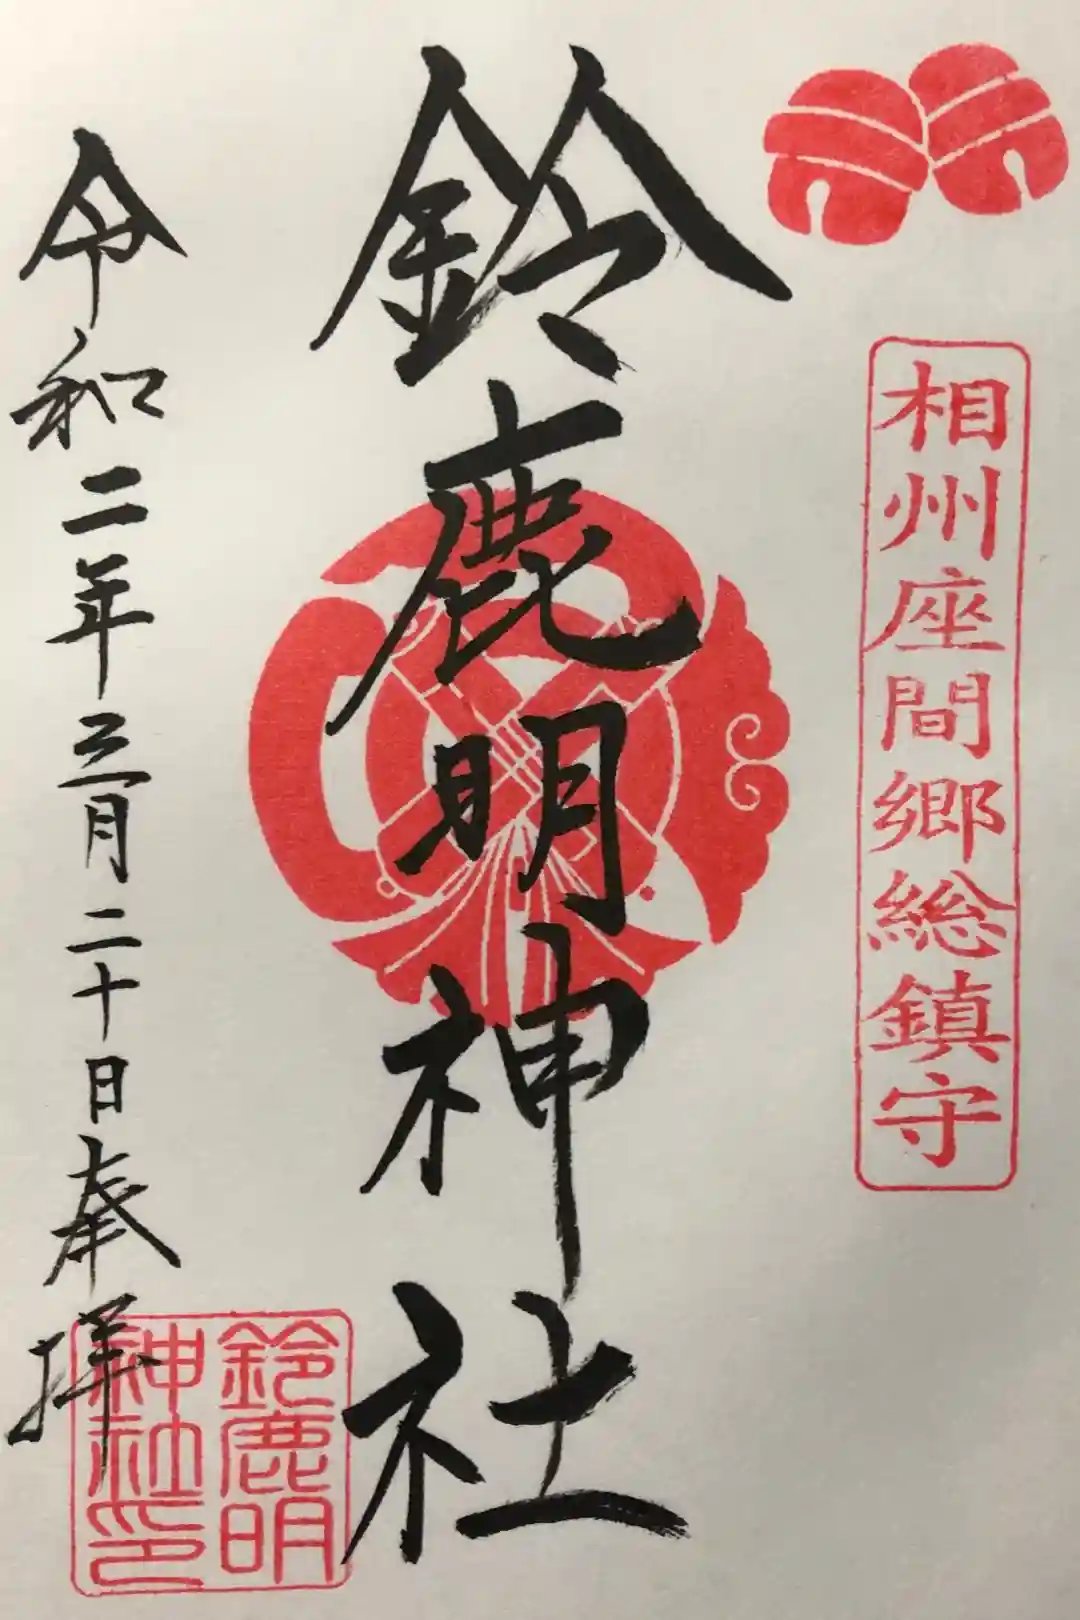 相州座間郷総鎮守
鈴鹿明神社
令和二年三月二十日奉拝
鈴鹿明
神社印